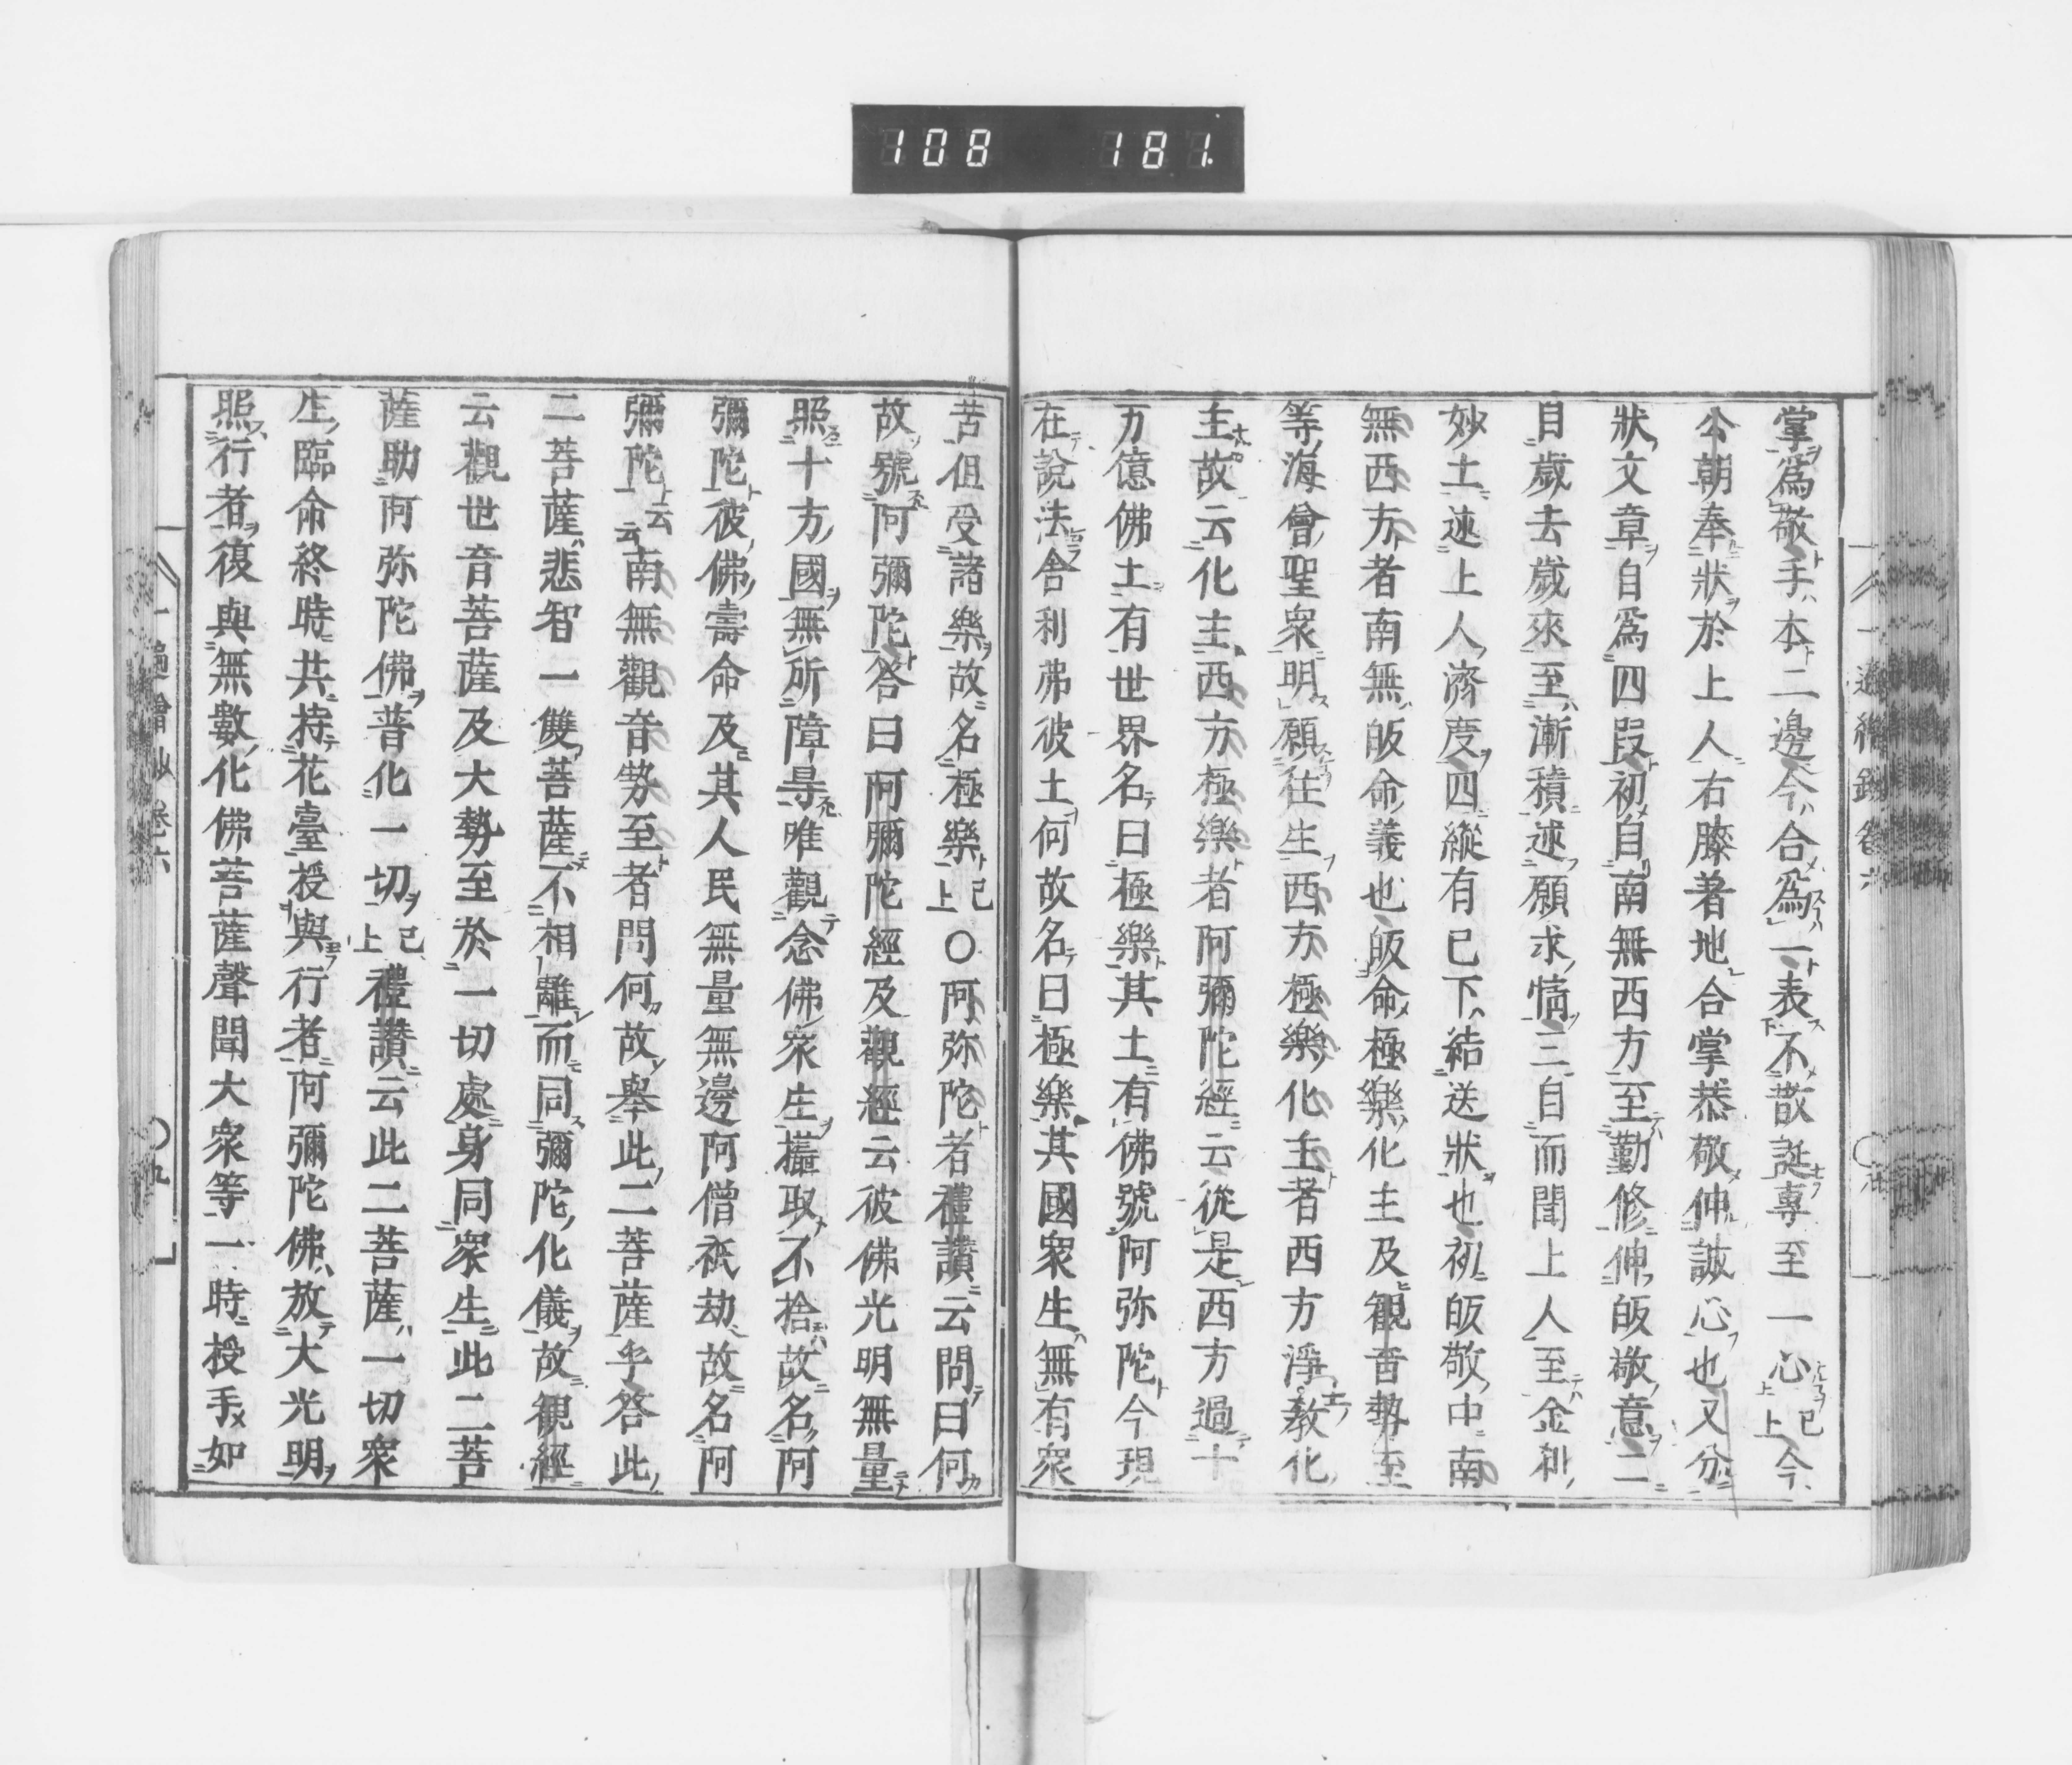 108 181
掌爲敬手本二邊今合爲一表不散誕專至一心已上今
公朝奉狀於上人右膝著地合掌恭敬伸誠心也又分
狀文章自爲四段初自南無西方至勤修伸皈敬意二
自歲去歲來至漸積述願求情三自而聞上人至金刹
妙土述上人濟度四縱有已下結送狀也初皈敬中南
無西方者南無皈命義也皈命極樂化主及觀音勢至
等海會聖衆明願往生西方極樂化主者西方淨教化
主故云化主西方極樂者阿彌陀經云從是西方過十
万億佛土有世界名曰極樂其土有佛號阿弥陀今現
在說法舍利弗彼土何故名曰極樂其國衆生無有衆
苦但受諸樂故名極樂已上〇阿弥陀者禮讚云問曰何
故號阿彌陀答曰阿彌陀經及觀經云彼佛光明無量
照十方國無所障㝵唯觀念佛衆生攝取不捨故名阿
彌陀彼佛壽命及其人民無量無邊阿僧祇劫故名阿
彌陀云云南無觀音勢至者問何故舉此二菩薩乎答此
二菩薩悲智一雙菩薩不相離而同彌陀化儀故觀經
云觀世音菩薩及大勢至於一切處身同衆生此二菩
薩助阿弥陀佛普化一切已上禮讚云此二菩薩一切衆
生臨命終時共持花臺授與行者阿彌陀佛放大光明
照行者復與無數化佛菩薩聲聞大衆等一時授手如
一遍繪鈔卷六 〇九